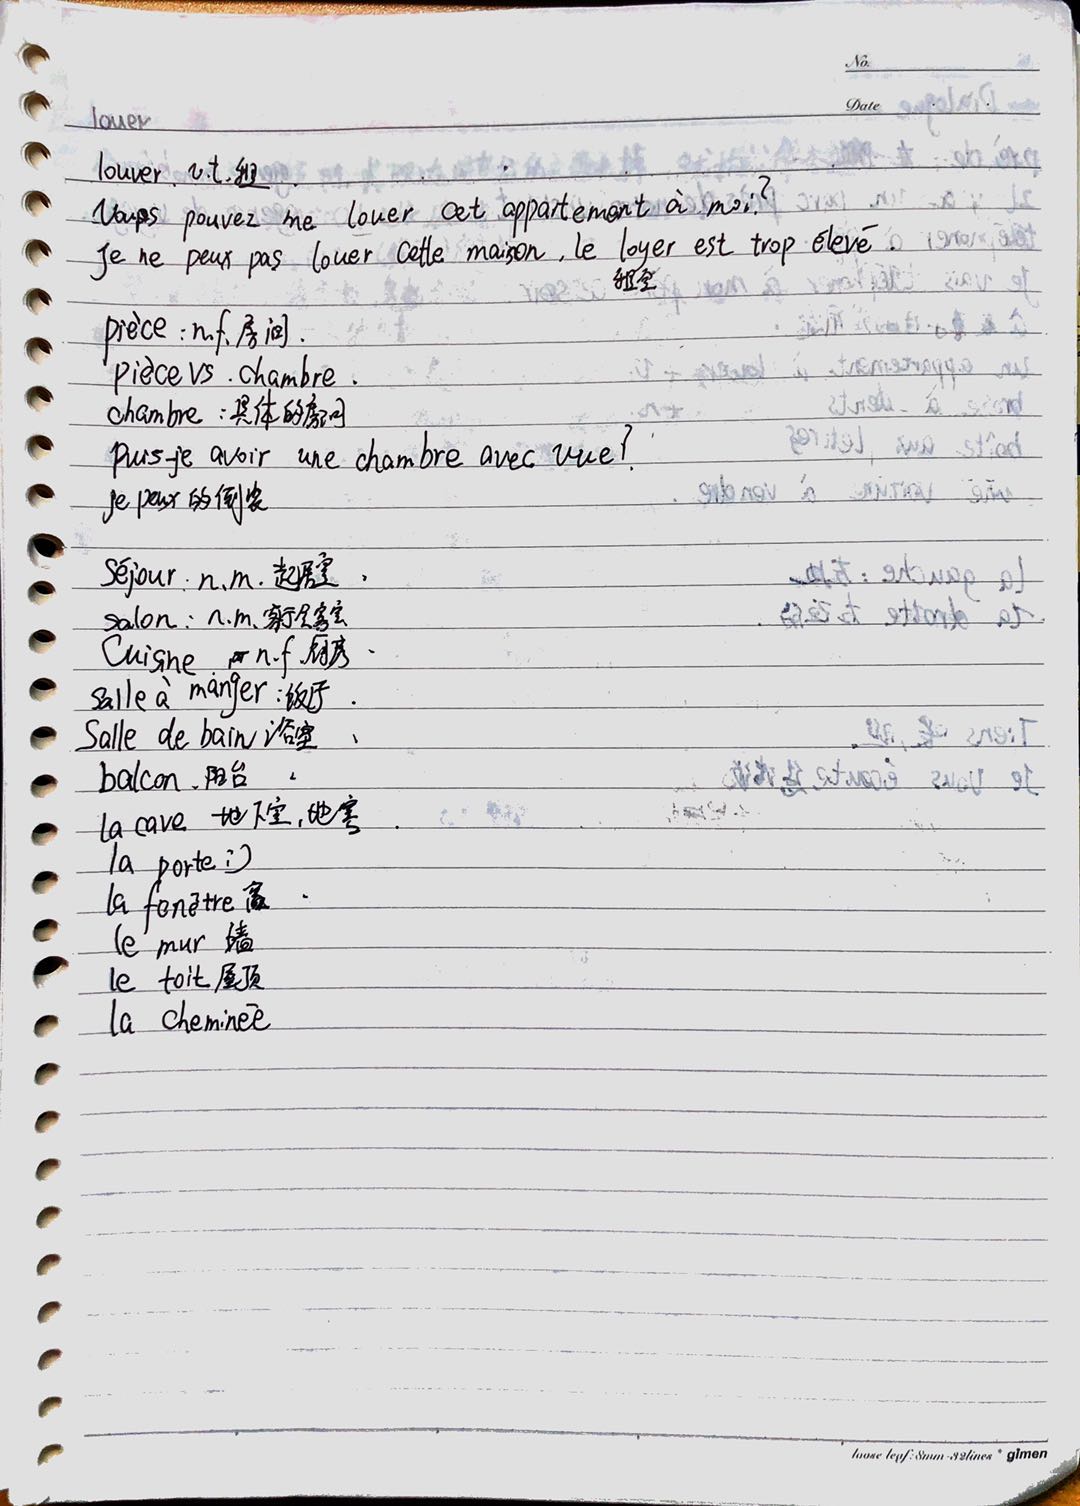 No.
Date
louer
louer. v.t. 租
Vous pouvez me louer cet appartement à moi?
Je ne peux pas louer cette maison, le loyer est trop élevé
租金
pièce : n.f. 房间.
pièce vs. chambre.
chambre : 具体的房间
Puis-je avoir une chambre avec vue?
je peux 的倒装
séjour : n.m. 起居室.
salon : n.m. 客室
Cuisine n.f. 厨房.
salle à manger : 饭厅.
Salle de bain 浴室、
balcon. 阳台
la cave 地下室, 地窖
la porte 门
la fenêtre 窗
le mur 墙
le toit 屋顶
la cheminée
loose leaf: 8mm·32lines * gimen